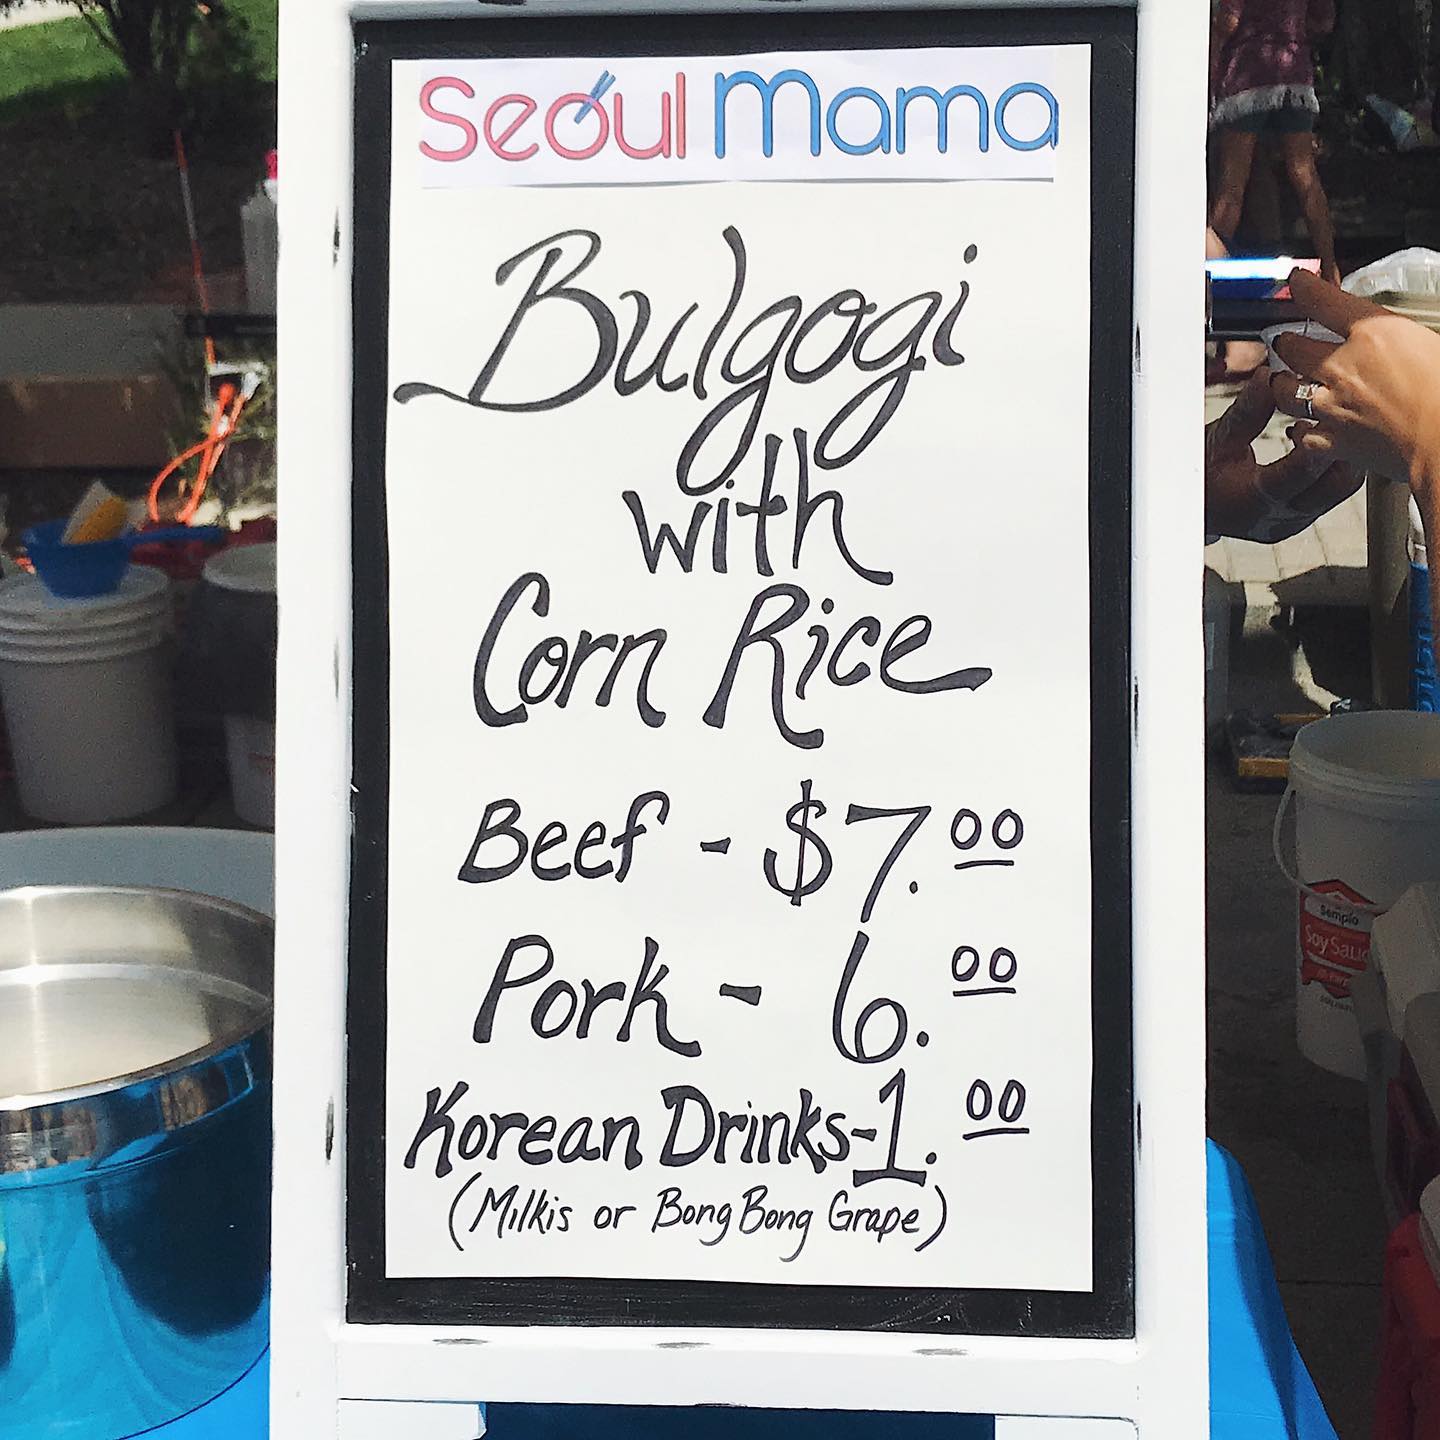 Seoul Mama
Bulgogi
with
Corn Rice
Beef - $7.00
Pork - 6.00
Korean Drinks - 1.00
(Milkis or Bong Bong Grape)
Sempio
Soy Sauc